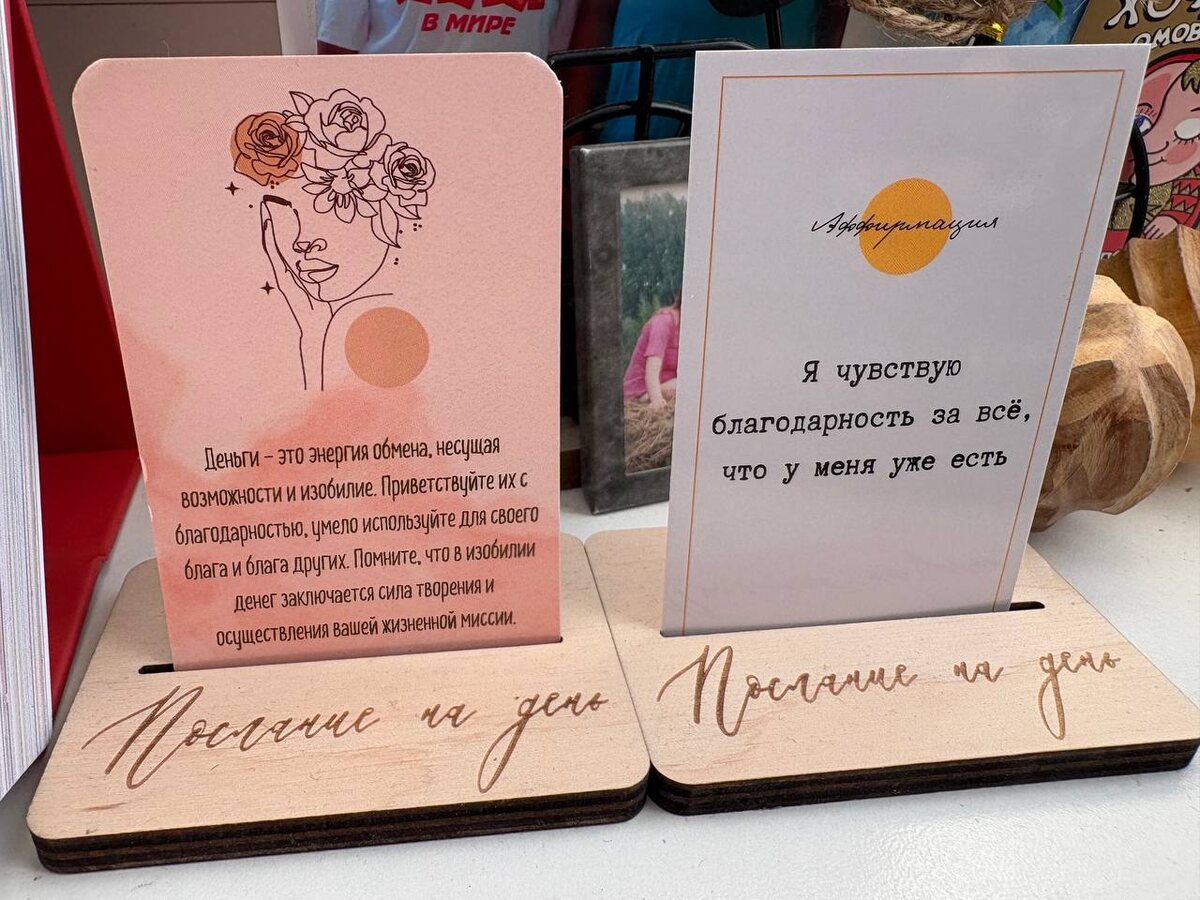 В МИРЕ
Деньги – это энергия обмена, несущая
возможности и изобилие. Приветствуйте их с
благодарностью, умело используйте для своего
блага и блага других. Помните, что в изобилии
денег заключается сила творения и
осуществления вашей жизненной миссии.
Послание на день
Аффирмация
Я чувствую
благодарность за всё,
что у меня уже есть
Послание на день